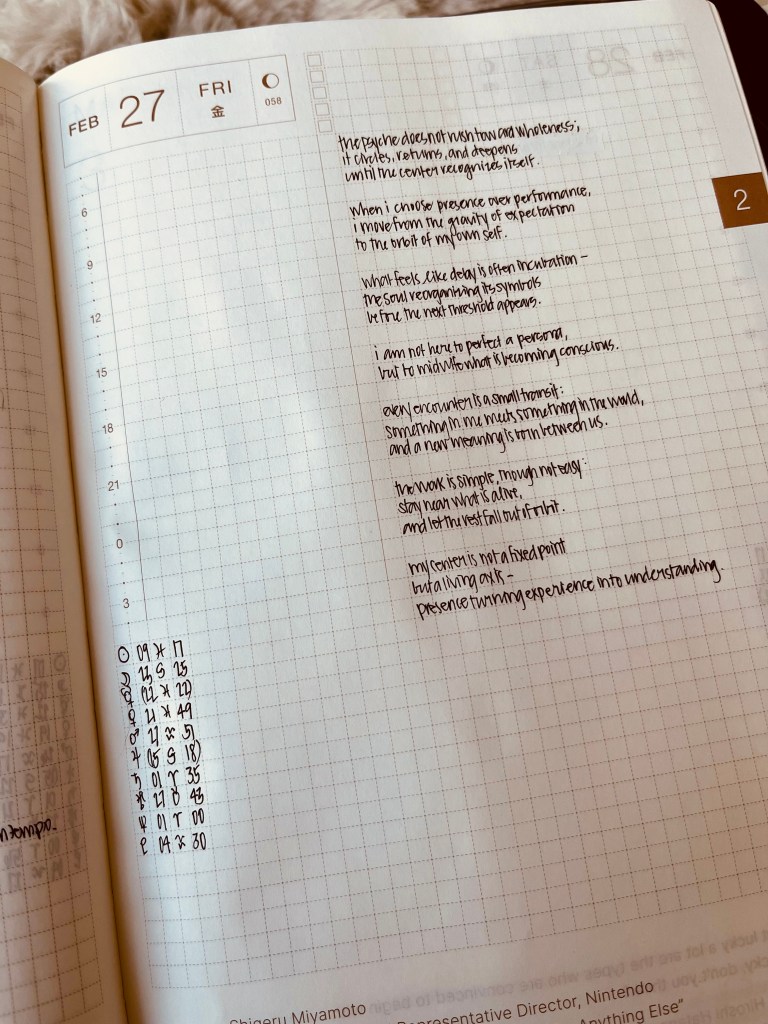 FEB 27 FRI
金
058
2
6
9
12
15
18
21
0
3
the psyche does not rush toward wholeness;
it circles, returns, and deepens
until the center recognizes itself.
when i choose presence over performance,
i move from the gravity of expectation
to the orbit of my own self.
what feels like delay is often incubation –
the soul reorganizing its symbols
before the next threshold appears.
i am not here to perfect a persona,
but to midwife what is becoming conscious.
every encounter is a small transit:
something in me meets something in the world,
and a new meaning is born between us.
the work is simple, though not easy:
stay near what is alive,
and let the rest fall out of orbit.
my center is not a fixed point
but a living axis –
presence turning experience into understanding.
☉ 09 ♓ 17
☽ 23 ♋ 25
☿ (22 ♓ 22)
♀ 21 ♓ 49
♂ 27 ♒ 51
♃ (15 ♋ 18)
♄ 01 ♈ 35
♅ 27 ♉ 43
♆ 01 ♈ 00
♇ 04 ♒ 30
Shigeru Miyamoto
Representative Director, Nintendo
Anything Else"